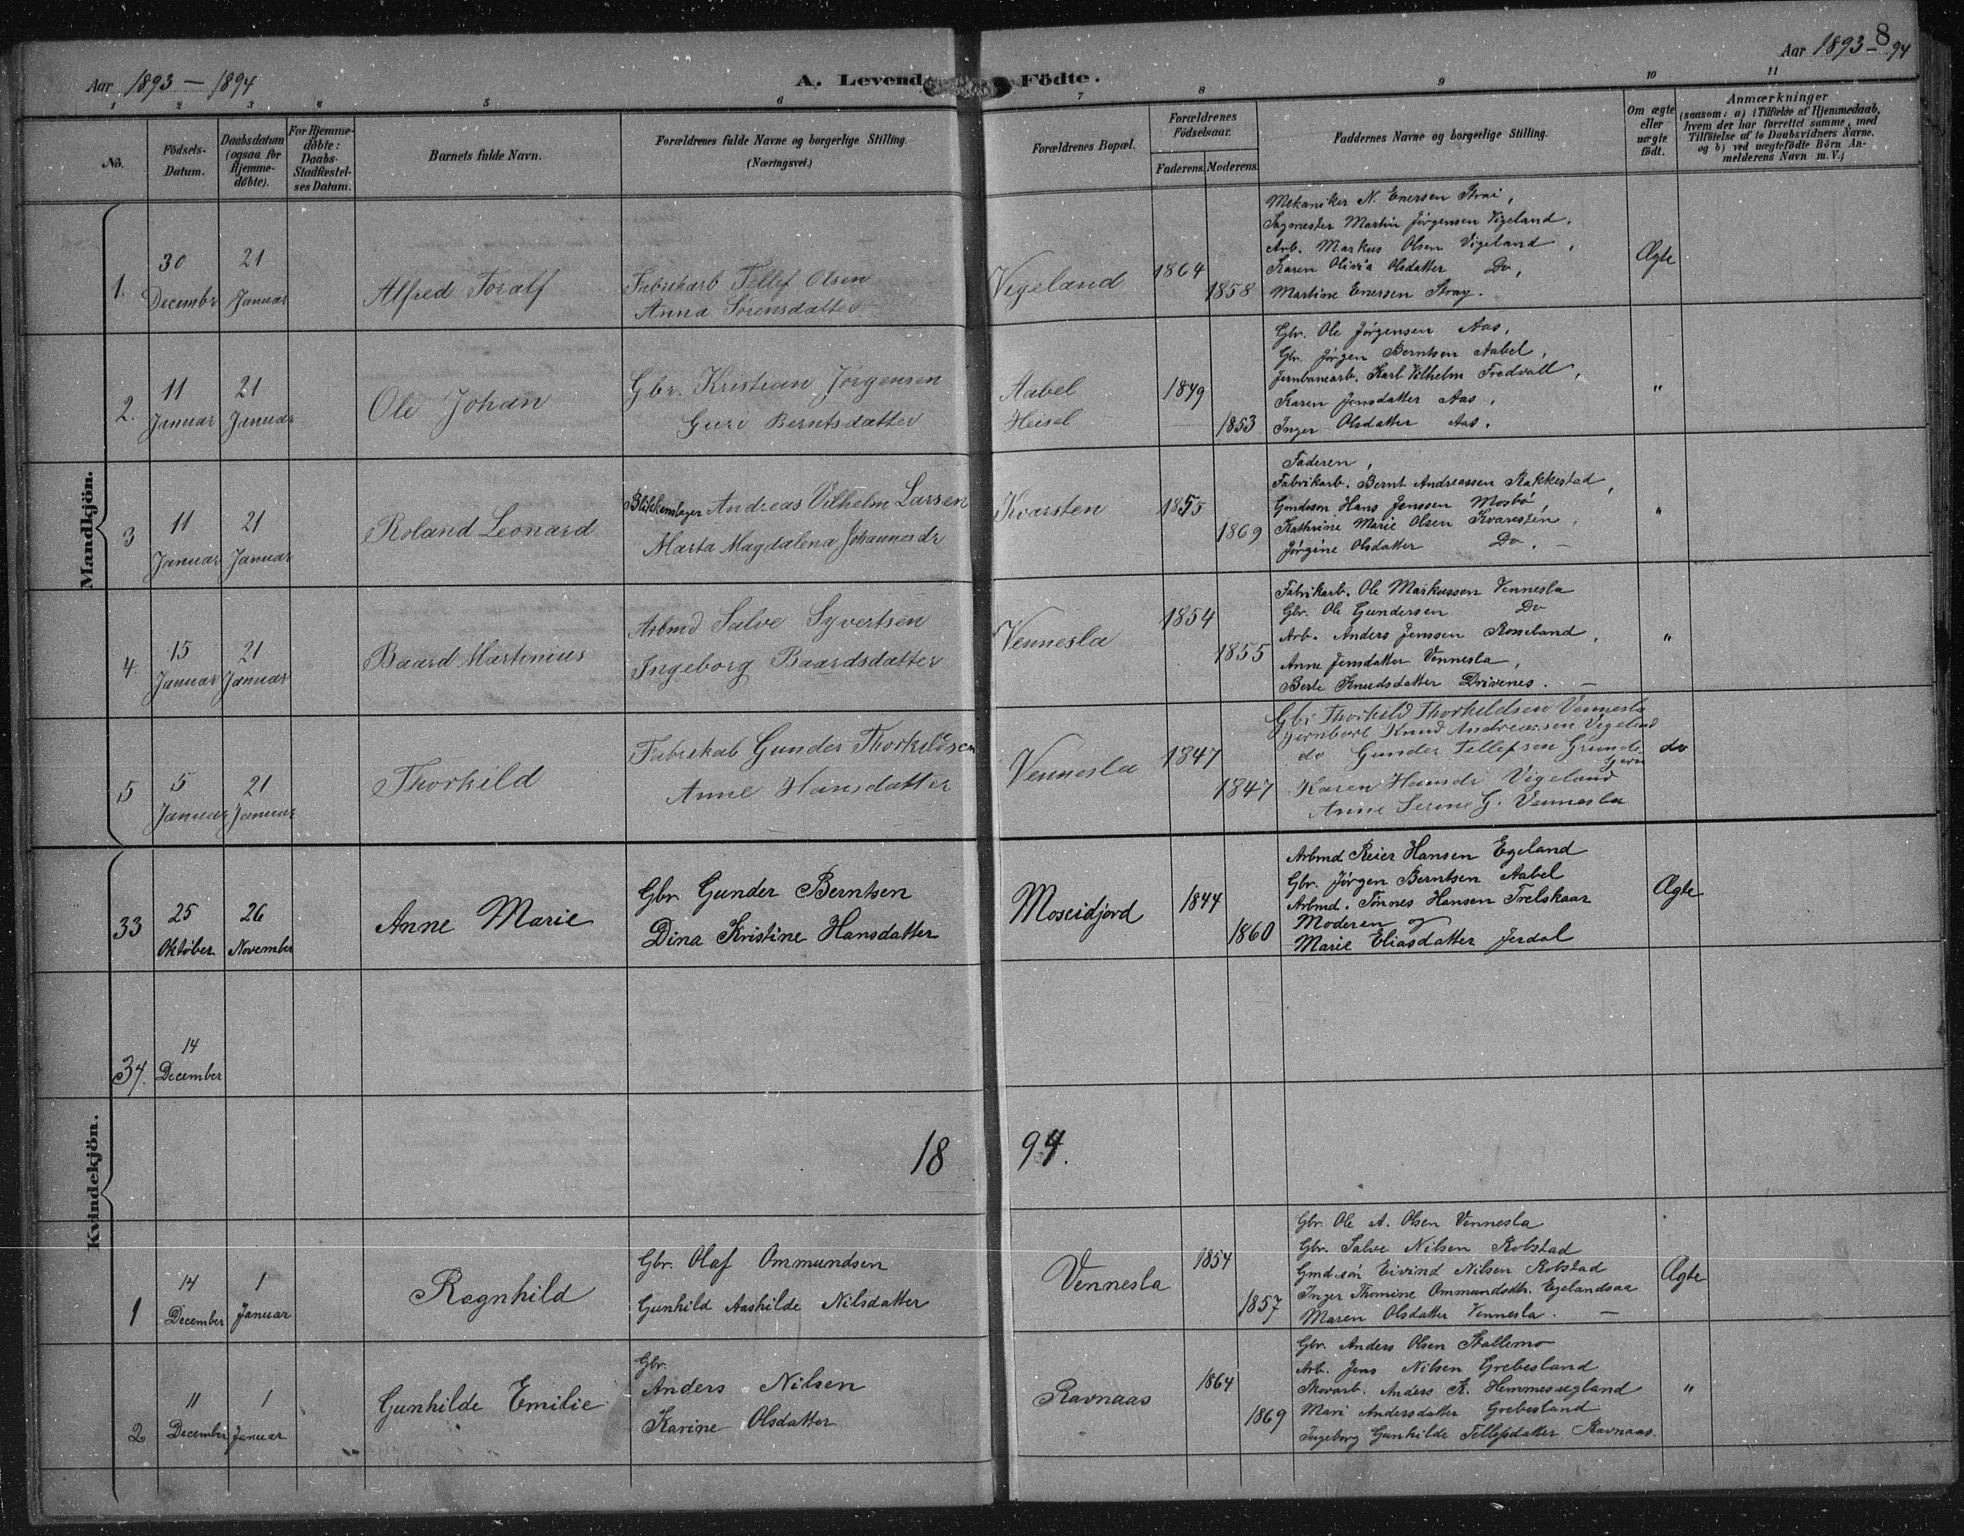 8
Aar 1893 — 1894
A. Levende Födte.
Aar 1893-94
1 2 3 4 5 6 7 8 9 10 11
No.
Födsels-
Datum.
Daabsdatum
(ogsaa for
Hjemme-
døbte).
For Hjemme-
døbte:
Daabs-
Stadfæstel-
ses Datum.
Barnets fulde Navn.
Forældrenes fulde Navne og borgerlige Stilling
(Næringsvei.)
Forældrenes Bopæl.
Forældrenes
Födselsaar.
Faderens. Moderens.
Faddernes Navne og borgerlige Stilling.
Om ægte
eller
uægte
født.
Anmærkninger
(saasom: a) i Tilfælde af Hjemmedaab,
hvem der har forrettet samme, med
Tilføielse af to Daabsvidners Navne.
og b) ved uægtefødte Börn An-
melderens Navn m. V.)
Mandkjön.
1.
30
December
21
Januar
Alfred Toralf
Fabrikarb Tellef Olsen
Anna Sørensdatter
Vigeland
1864
1858
Mekaniker N. Enersen Strai,
Sagmester Martin Jørgensen Vigeland,
Arb. Markus Olsen Vigeland,
Karen Olivia Olsdatter Do,
Martine Enersen Stray.
Ægte
2.
11
Januar
21
Januar
Ole Johan
Gbr. Kristian Jørgensen
Guri Berntsdatter
Aabel
Heisel
1849
1853
Gbr. Ole Jørgensen Aas,
Gbr. Jørgen Berntsen Aabel,
Jernbanearb. Karl Vilhelm Fredvall,
Karen Jensdatter Aas,
Inger Olsdatter Aas.
"
3
11
Januar
21
Januar
Roland Leonard
Blikkenslager Andreas Vilhelm Larsen
Marta Magdalena Johannesdr
Kvarsten
1855
1869
Faderen,
Fabrikarb. Bernt Andreassen Rakkestad,
Gmdssøn Hans Jenssen Mosbø,
Kathrine Marie Olsen Kvaresten,
Jørgine Olsdatter Do. —
"
4.
15
Januar
21
Januar
Baard Martinius
Arbmd Salve Syvertsen
Ingeborg Baardsdatter
Vennesla
1854
1855
Fabrikarb. Ole Markussen Vennesla
Gbr. Ole Gundersen Do
Arb. Anders Jenssen Roseland,
Anne Jensdatter Vennesla,
Berte Knudsdatter Drivenes. —
"
5
5
Januar
21
Januar
Thorkild
Fabrikab Gunder Thorkildsen
Anne Hansdatter
Vennesla
1847
1847
Gbr Thorkild Thorkildsen Vennesla
Knud Andreassen Vigeland
do Gunder Tellefsen
Karen Hansdr Vigeland
Anne Serine G. Vennesla
do
Kvindekjön.
33
25
Oktober
26
November
Anne Marie
Gbr Gunder Berntsen
Dina Kristine Hansdatter
Moseidjord
1844
1860
Arbmd Reier Hansen Egeland
Gbr. Jørgen Berntsen Aabel
Arbmd. Tønnes Hansen Trelskaar
Moderen og
Marie Eliasdatter Jerdal
Ægte
34.
14
December
18 94.
1
14
December
1
Januar
Ragnhild
Gbr. Olaf Ommundsen
Gunhild Aashilde Nilsdatter
Vennesla
1854
1857
Gbr. Ole A. Olsen Vennesla
Gbr. Salve Nilsen Robstad
Gmdssøn Eivind Nilsen Robstad
Inger Thomine Ommundsdtr. Egelandsaa
Maren Olsdatter Vennesla. —
Ægte
2
11
December
1
Januar
Gunhilde Emilie
Gbr.
Anders Nilsen
Karine Olsdatter
Ravnaas
1864
1869
Gbr. Anders Olsen Stallemo
Arb. Jens Nilsen Grebesland
Skovarb. Anders K. Hemmesugland
Mari Andersdatter Grebesland
Ingeborg Gunhilde Tellefsdatter Ravnaas.
"